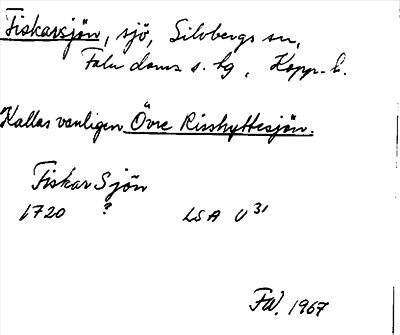 Fiskarsjön, sjö, Silvbergs sn,
Falu doms. s. hg, Kopp. l.
Kallas vanligen Övre Risshyttesjön.
Fiskar Sjön
1720 ? LSA U 31
FW. 1967